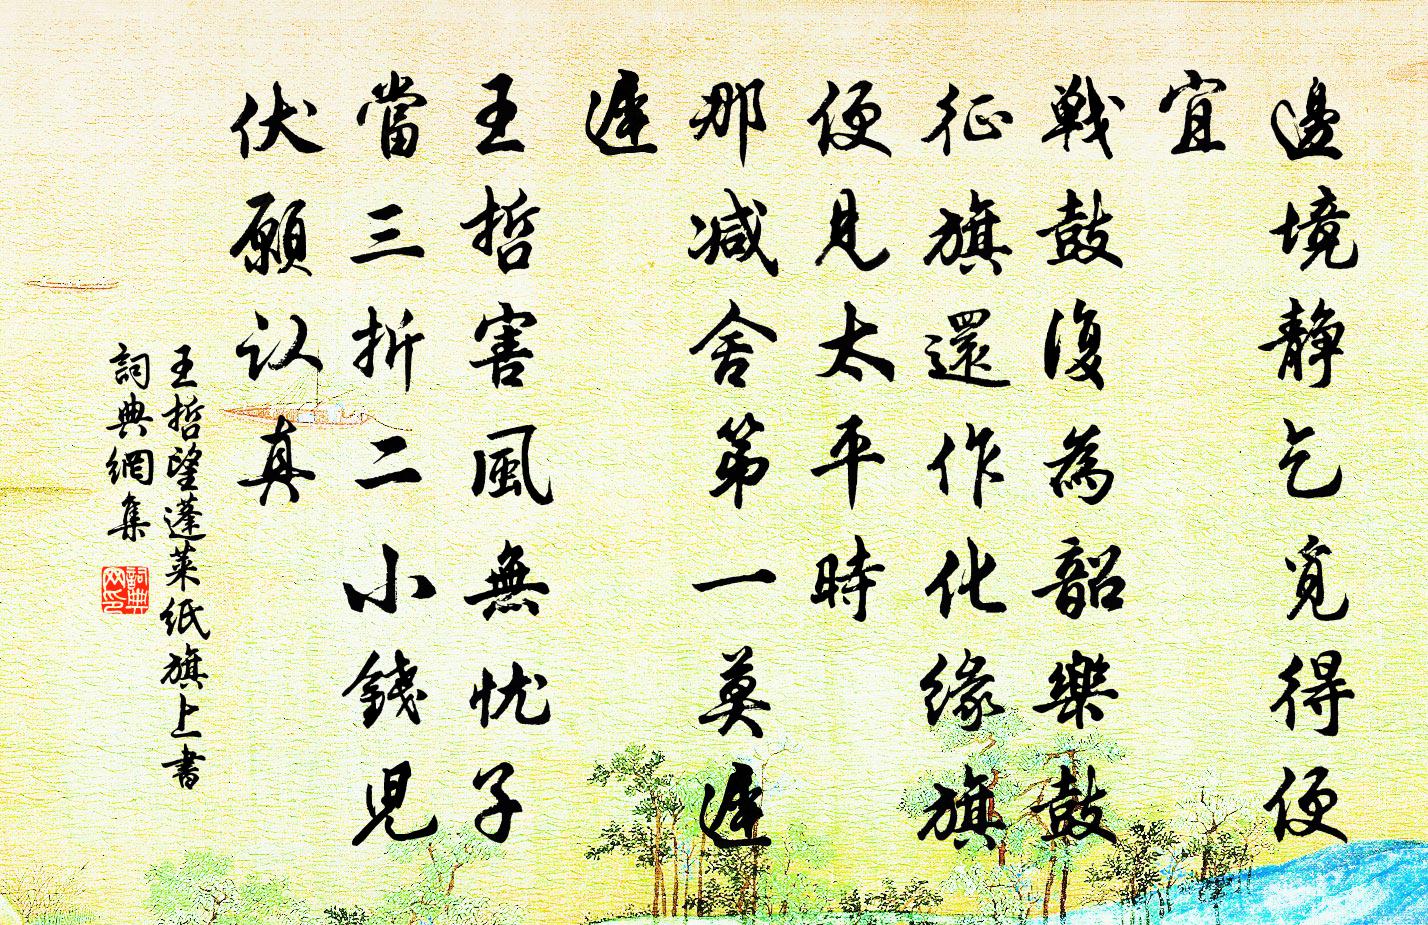 邊境静乞覓得便
宜
戰鼓復為韶樂鼓
征旗還作化緣旗
便見太平時
那减舍第一莫遲
遲
王哲害風無忧子
當三折二小錢児
伏願认真
王哲望蓬莱纸旗上書
詞典網集
詞典网印